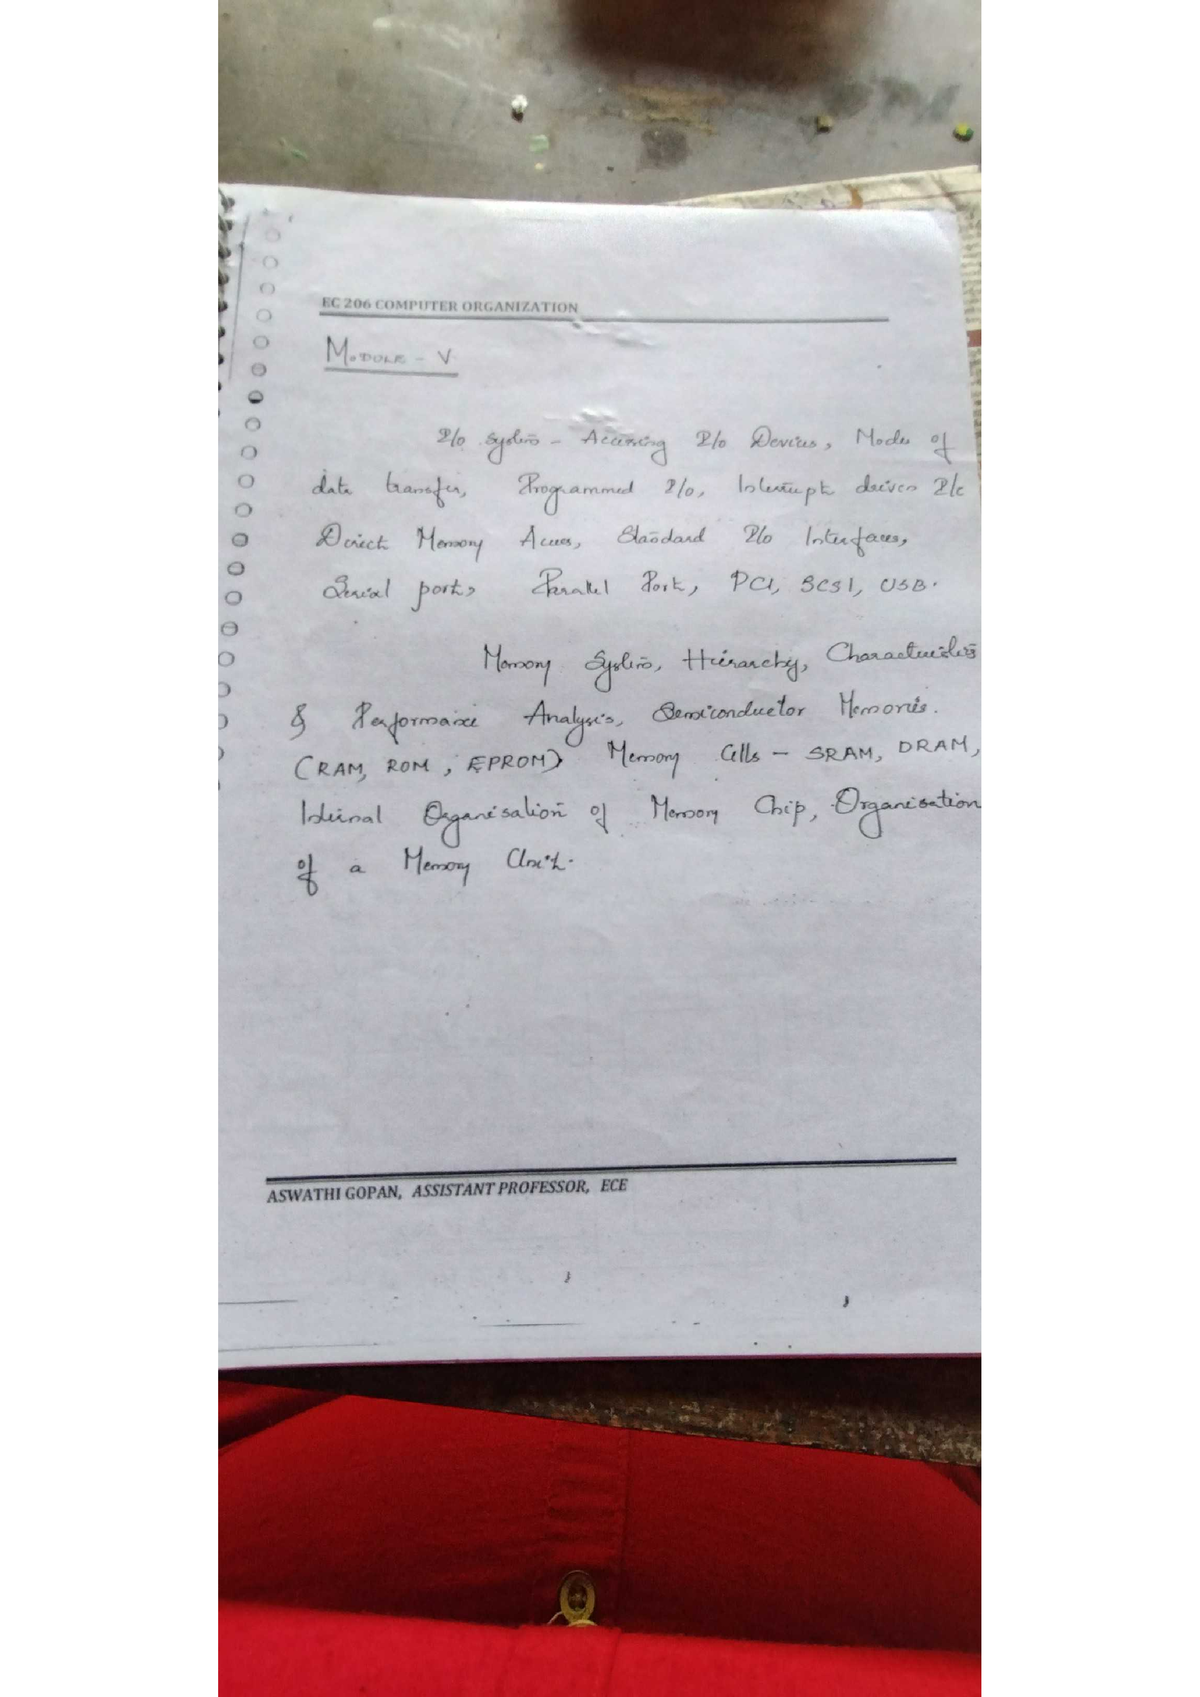 EC 206 COMPUTER ORGANIZATION
MODULE - V
I/O System - Accessing I/O Devices, Modes of
data transfer, Programmed I/O, Interrupt driven I/O
Direct Memory Access, Standard I/O Interfaces,
Serial port, Parallel Port, PCI, SCSI, USB.
Memory System, Hierarchy, Characteristics
& Performance Analysis, Semiconductor Memories.
(RAM, ROM, EPROM) Memory Cells - SRAM, DRAM,
Internal Organisation of Memory Chip, Organisation
of a Memory Unit.
ASWATHI GOPAN, ASSISTANT PROFESSOR, ECE